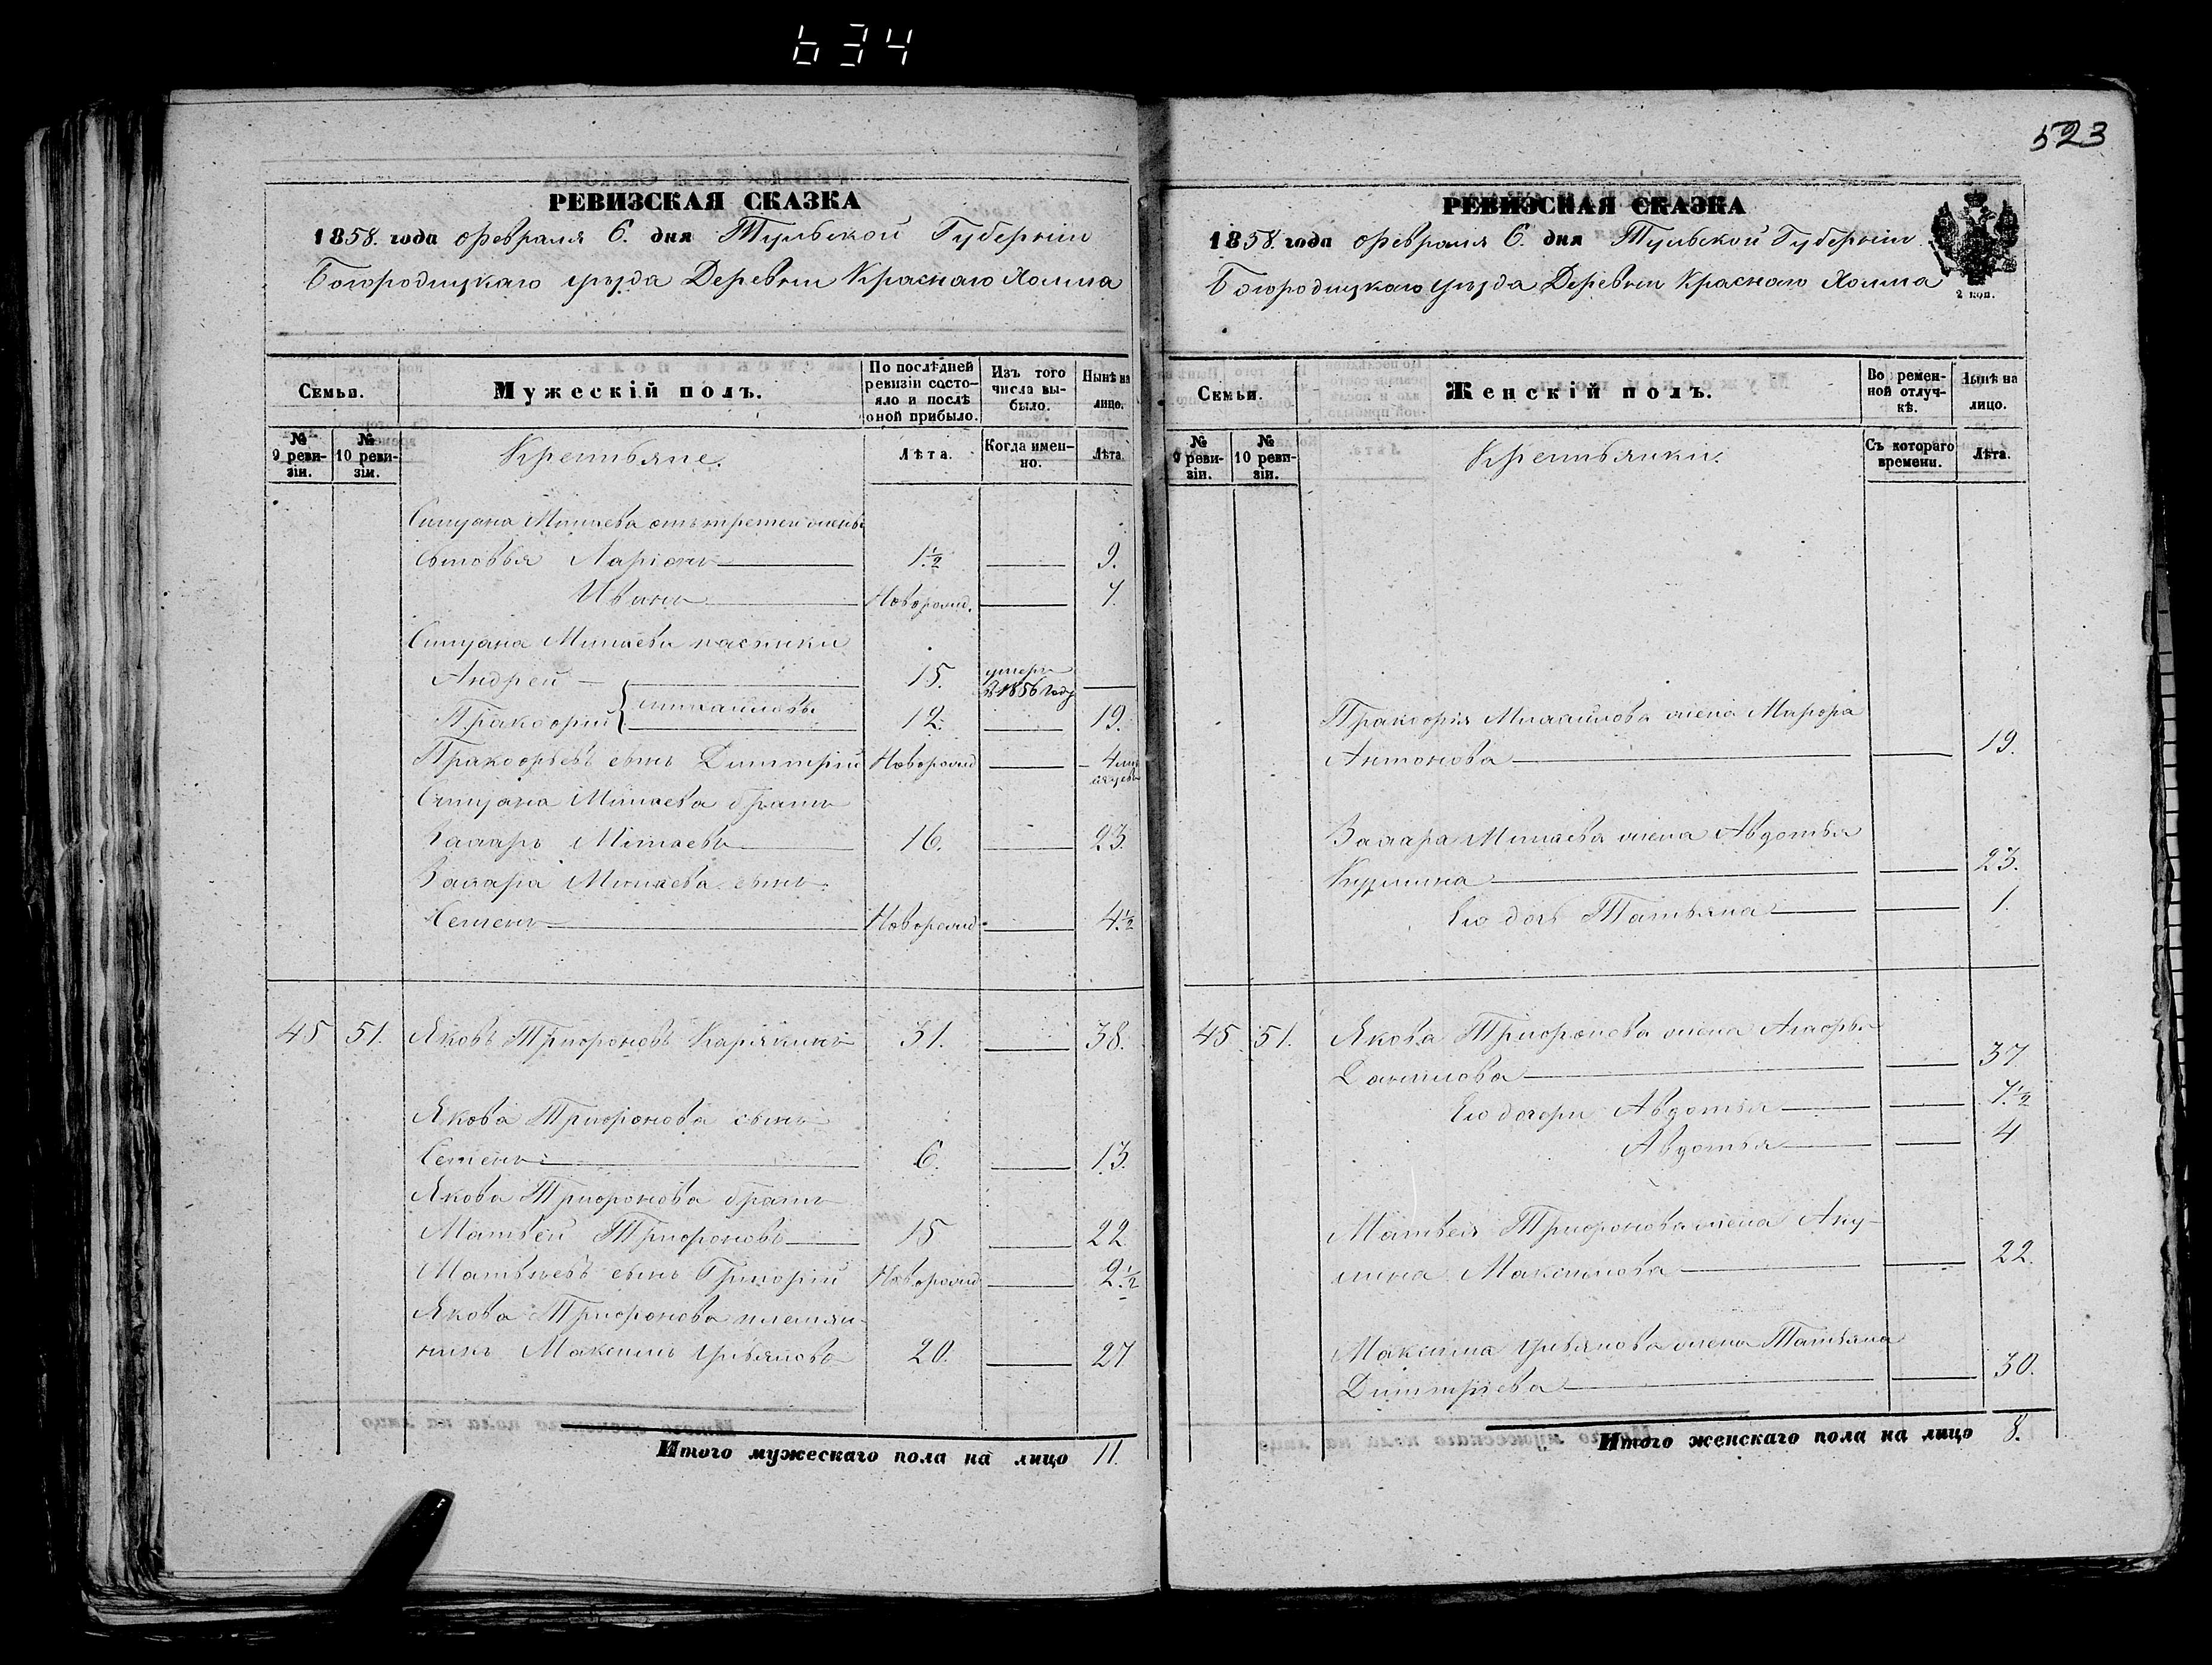 634
523
РЕВИЗСКАЯ СКАЗКА
1858. года Февраля 6. дня Тульской Губерніи
Богородицкаго уѣзда Деревни Краснаго Холма
Семьи.
Мужескій полъ.
По послѣдней ревизіи состо-
яло и послѣ
оной прибыло.
Изъ того
числа вы-
было.
Нынѣ на
лицо.
№
9 реви-
зіи.
№
10 реви-
зіи.
Крестьяне.
Лѣта.
Когда имен-
но.
Лѣта.
Минаева отъ третей жены
сыновья Ларіонъ 1½ 9.
Иванъ Новорожд. 7.
Минаева пасынки
Андрей 15. умеръ
въ 1856 году
Михайловы
Пракофій 12. 19.
Пракофьевъ сынъ Димитрій Новорожд 4
Минаева братъ
Захаръ Минаевъ 16. 23.
Захара Минаева сынъ
Семенъ Новорожд. 4½
45 51. Яковъ Трифоновъ Карякинъ 31. 38.
Якова Трифонова сынъ
Семенъ 6. 13.
Якова Трифонова братъ
Матвей Трифоновъ 15 22
Матвѣевъ сынъ Григорій Новорожд 2½
Якова Трифонова племян-
никъ Максимъ Ульяновъ 20. 27
Итого мужескаго пола на лицо 11.
РЕВИЗСКАЯ СКАЗКА
1858. года Февраля 6. дня Тульской Губерніи
Богородицкаго уѣзда Деревни Краснаго Холма
2 коп.
Семьи.
Женскій полъ.
Во времен-
ной отлуч-
кѣ.
Нынѣ на
лицо.
№
9 реви-
зіи.
№
10 реви-
зіи.
Крестьянки.
Съ котораго
времени.
Лѣта.
Пракофія Михайлова жена Марфа
Антонова 19.
Захара Минаева жена Авдотья
Кузмина 23.
Его дочь Татьяна 1.
45. 51. Якова Трифонова жена Агафья
Данилова 37
Его дочери Авдотья 7½
Авдотья 4
Матвея Трифонова жена Аку-
лина Максимова 22.
Максима Ульянова жена Татьяна
Димитріева 30.
Итого женскаго пола на лицо 8.